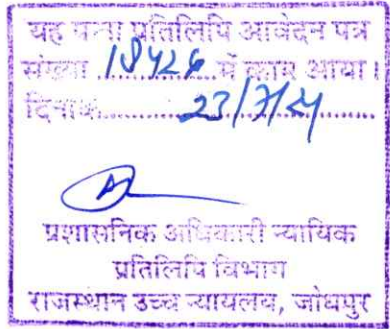 यह पन्ना प्रतिलिपि आवेदन पत्र
संख्या 18426 में काम आया।
दिनांक 23/7/24
प्रशासनिक अधिकारी न्यायिक
प्रतिलिपि विभाग
राजस्थान उच्च न्यायलय, जोधपुर